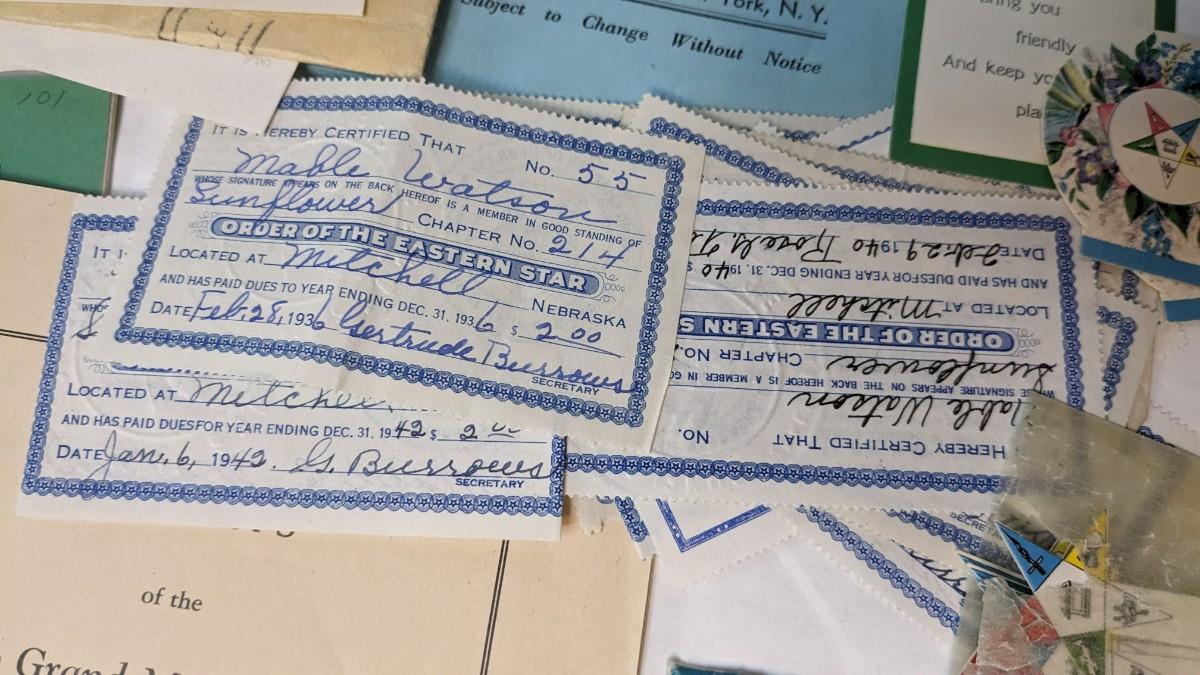 York, N. Y.
Subject to Change Without Notice
bring you
friendly
And keep
101
IT IS HEREBY CERTIFIED THAT No. 55
Mable Watson
WHOSE SIGNATURE APPEARS ON THE BACK HEREOF IS A MEMBER IN GOOD STANDING OF
Sunflower CHAPTER No. 214
ORDER OF THE EASTERN STAR
LOCATED AT Mitchell NEBRASKA
AND HAS PAID DUES TO YEAR ENDING DEC. 31. 1936 $ 2.00
DATE Feb. 28, 1936 Gertrude Burrows
SECRETARY
IT I
WHO
LOCATED AT
AND HAS PAID DUES FOR YEAR ENDING DEC. 31, 1942 $ 2 00
DATE Jan. 6, 1942. G. Burrows
SECRETARY
HEREBY CERTIFIED THAT NO.
Mable Watson
WHOSE SIGNATURE APPEARS ON THE BACK HEREOF IS A MEMBER IN GO
Sunflower CHAPTER NO.
ORDER OF THE EASTERN S
LOCATED AT Mitchell
AND HAS PAID DUES FOR YEAR ENDING DEC. 31, 1940 $
DATE Feb. 29 1940
SECRE
of the
Grand